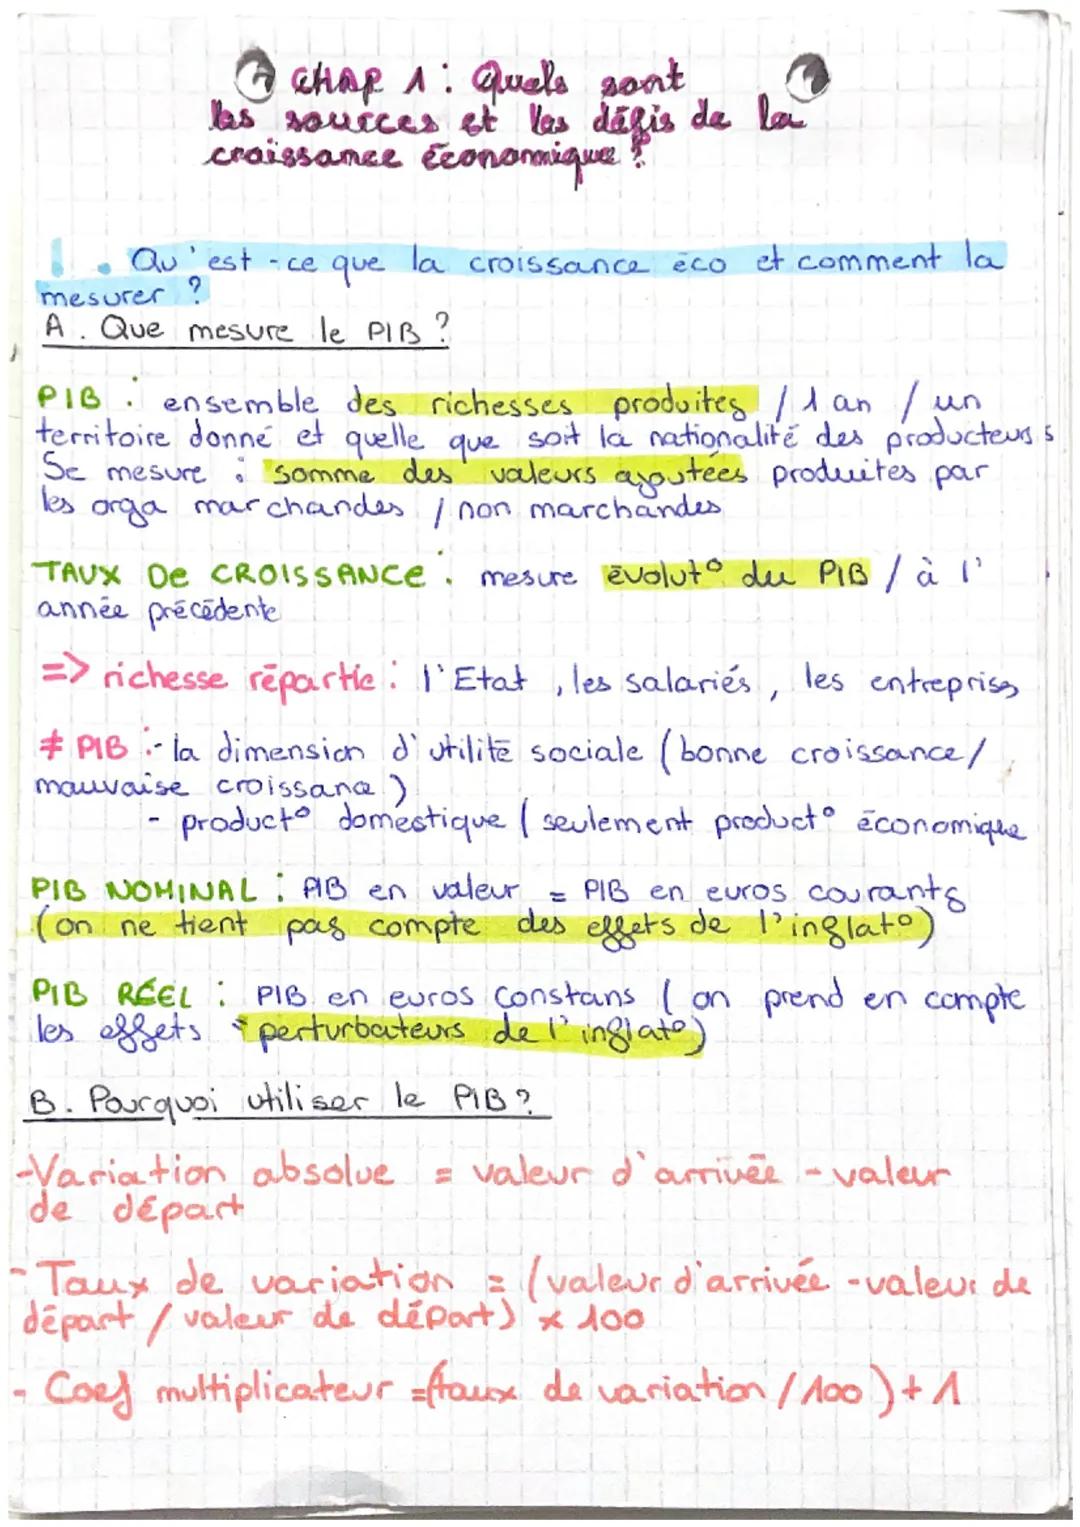 CHAP 1 : Quels sont
les sources et les défis de la
croissance économique ?
I. Qu'est-ce que la croissance éco et comment la
mesurer ?
A. Que mesure le PIB ?
PIB : ensemble des richesses produites / 1 an / un
territoire donné et quelle que soit la nationalité des producteurs
Se mesure : somme des valeurs ajoutées produites par
les orga marchandes / non marchandes
TAUX De CROISSANCE : mesure évolut° du PIB / à l'
année précédente
=> richesse répartie : l'Etat, les salariés, les entreprises
≠ PIB :- la dimension d'utilité sociale (bonne croissance/
mauvaise croissance)
- product° domestique ( seulement product° économique
PIB NOMINAL : PIB en valeur = PIB en euros courants
(on ne tient pas compte des effets de l'inflat°)
PIB RÉEL : PIB en euros constans ( on prend en compte
les effets perturbateurs de l'inflat°)
B. Pourquoi utiliser le PIB ?
-Variation absolue = valeur d'arrivée - valeur
de départ
- Taux de variation = (valeur d'arrivée - valeur de
départ / valeur de départ) x 100
- Coef multiplicateur =(taux de variation / 100) + 1